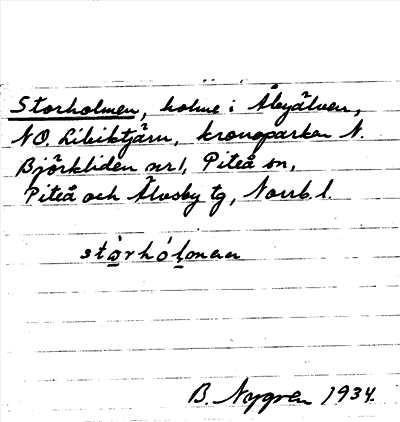 Storholmen, holme i Åbyälven,
NO. Lillviktjärn, kronoparken N.
Björkliden nr 1, Piteå sn,
Piteå och Älvsby tg, Norrb. l.
stòrhólmen
B. Nygren 1934.